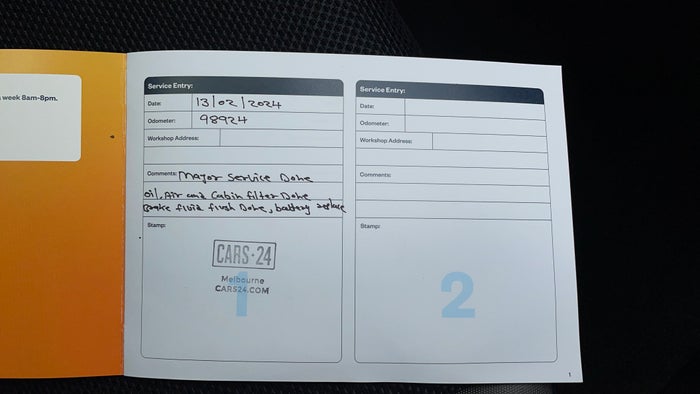 a week 8am-8pm.
Service Entry:
Date: 13/02/2024
Odometer: 98924
Workshop Address:
Comments: Mayor Service Done
oil, Air and Cabin filter Done
Brake fluid flush Done, battery replace
Stamp:
CARS·24
Melbourne
CARS24.COM
1
Service Entry:
Date:
Odometer:
Workshop Address:
Comments:
Stamp:
2
1